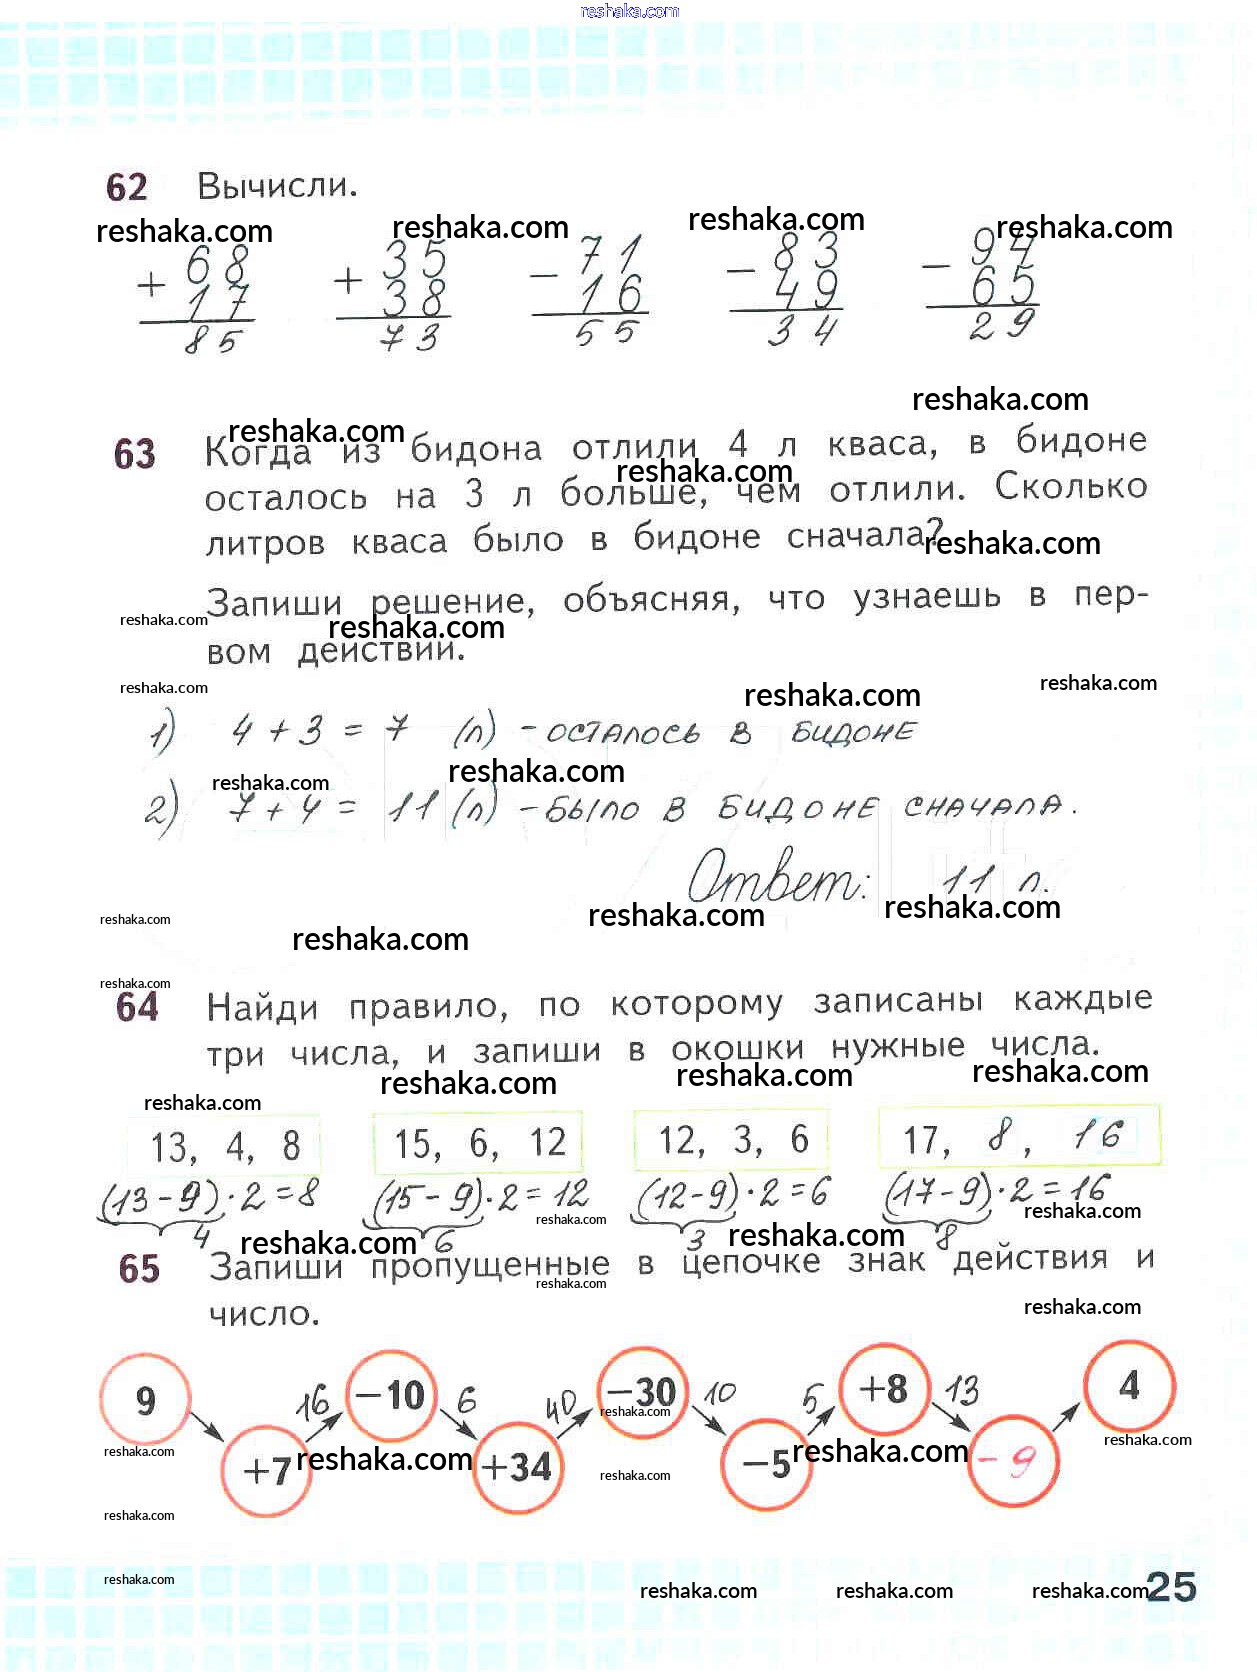 reshaka.com
62 Вычисли.
reshaka.com reshaka.com reshaka.com reshaka.com
+ 68 + 35 - 71 - 83 - 94
17 38 16 49 65
85 73 55 34 29
reshaka.com
63 Когда из бидона отлили 4 л кваса, в бидоне
reshaka.com
осталось на 3 л больше, чем отлили. Сколько
reshaka.com
литров кваса было в бидоне сначала?
reshaka.com
Запиши решение, объясняя, что узнаешь в пер-
reshaka.com reshaka.com
вом действии.
reshaka.com reshaka.com reshaka.com
1) 4 + 3 = 7 (л) - осталось в бидоне
reshaka.com reshaka.com
2) 7 + 4 = 11 (л) - было в бидоне сначала.
Ответ: 11 л.
reshaka.com reshaka.com reshaka.com reshaka.com
reshaka.com
64 Найди правило, по которому записаны каждые
три числа, и запиши в окошки нужные числа.
reshaka.com reshaka.com reshaka.com reshaka.com
13, 4, 8 15, 6, 12 12, 3, 6 17, 8, 16
(13-9)·2=8 (15-9)·2=12 (12-9)·2=6 (17-9)·2=16
reshaka.com reshaka.com
4 6 3 8
reshaka.com reshaka.com
65 Запиши пропущенные в цепочке знак действия и
reshaka.com
число.
reshaka.com
9 16 -10 6 40 -30 10 5 +8 13 4
reshaka.com reshaka.com reshaka.com
+7 +34 -5 -9
reshaka.com reshaka.com reshaka.com
reshaka.com
reshaka.com
reshaka.com reshaka.com reshaka.com 25